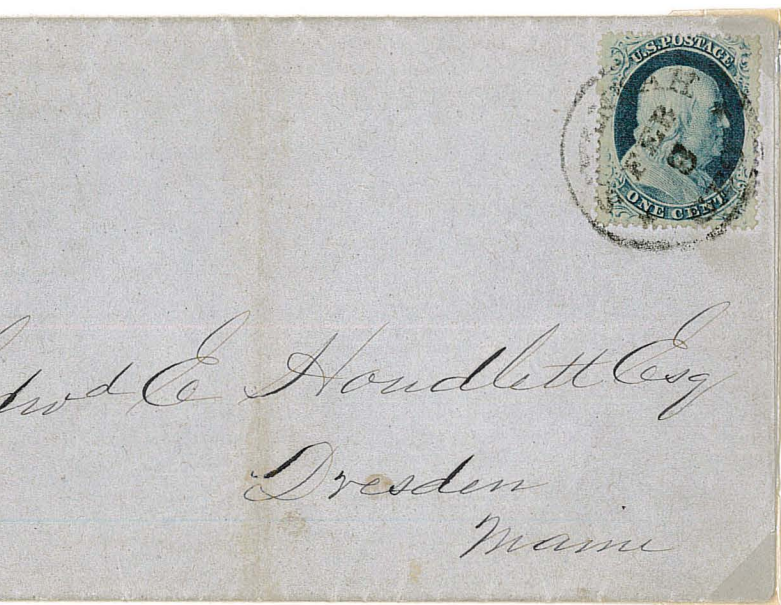 U.S. POSTAGE
FEB
ONE CENT
Edwd E Houdlett Esq
Dresden
Maine